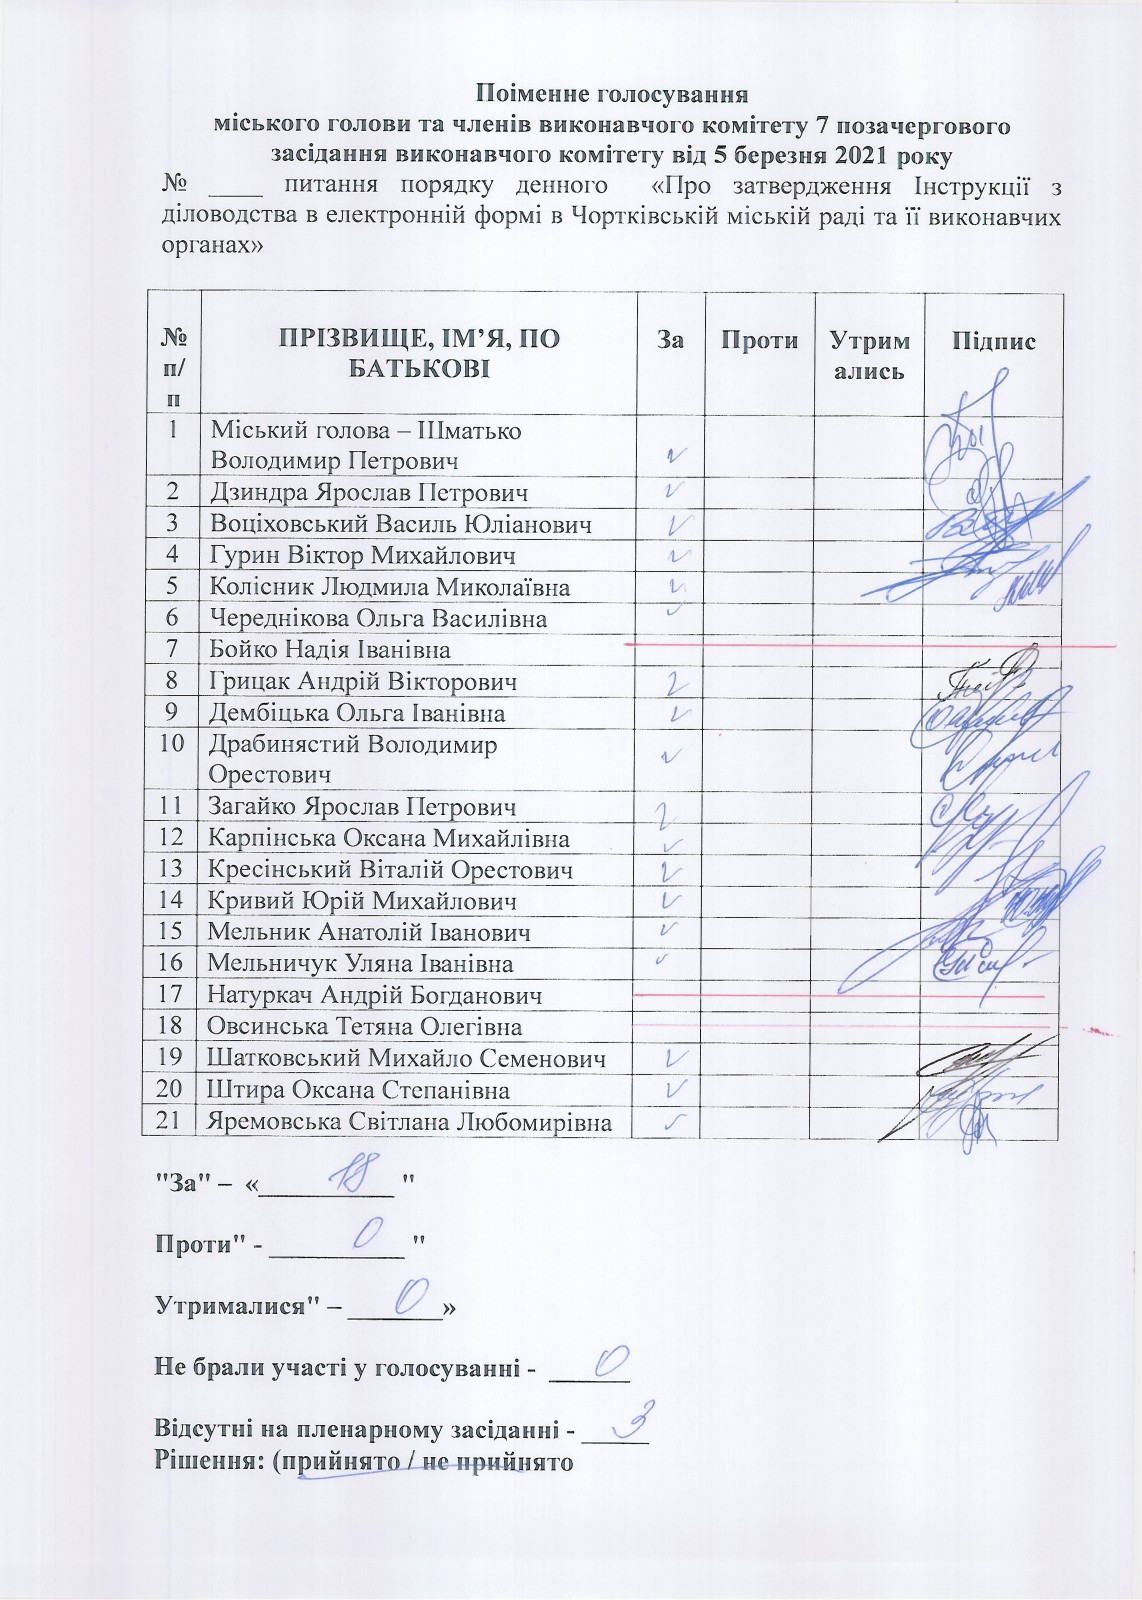 Поіменне голосування
міського голови та членів виконавчого комітету 7 позачергового
засідання виконавчого комітету від 5 березня 2021 року
№ ____ питання порядку денного «Про затвердження Інструкції з
діловодства в електронній формі в Чортківській міській раді та її виконавчих
органах»
№ п/п ПРІЗВИЩЕ, ІМ’Я, ПО БАТЬКОВІ За Проти Утримались Підпис
1 Міський голова – Шматько
Володимир Петрович
2 Дзиндра Ярослав Петрович
3 Воціховський Василь Юліанович
4 Гурин Віктор Михайлович
5 Колісник Людмила Миколаївна
6 Череднікова Ольга Василівна
7 Бойко Надія Іванівна
8 Грицак Андрій Вікторович
9 Дембіцька Ольга Іванівна
10 Драбинястий Володимир
Орестович
11 Загайко Ярослав Петрович
12 Карпінська Оксана Михайлівна
13 Кресінський Віталій Орестович
14 Кривий Юрій Михайлович
15 Мельник Анатолій Іванович
16 Мельничук Уляна Іванівна
17 Натуркач Андрій Богданович
18 Овсинська Тетяна Олегівна
19 Шатковський Михайло Семенович
20 Штира Оксана Степанівна
21 Яремовська Світлана Любомирівна
"За" – « 18 "
Проти" - 0 "
Утрималися" – 0 »
Не брали участі у голосуванні - 0
Відсутні на пленарному засіданні - 3
Рішення: (прийнято / не прийнято